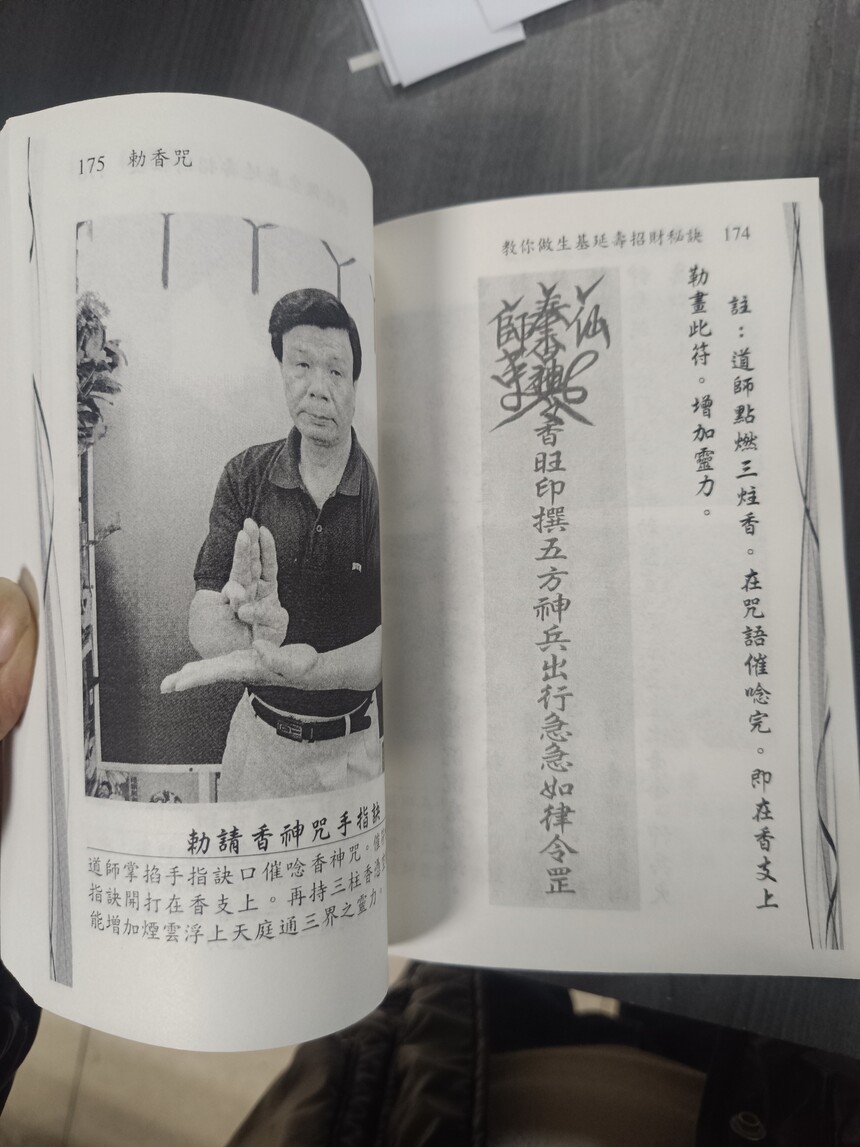 教你做生基延壽招財秘訣 174
註：道師點燃三炷香。在咒語催唸完。即在香支上
勅畫此符。增加靈力。
仙
師
香旺印撰五方神兵出行急急如律令罡
175 勅香咒
勅請香神咒手指訣
道師掌掐手指訣口催唸香神咒。
指訣開打在香支上。再持三柱香
能增加煙雲浮上天庭通三界之靈力。